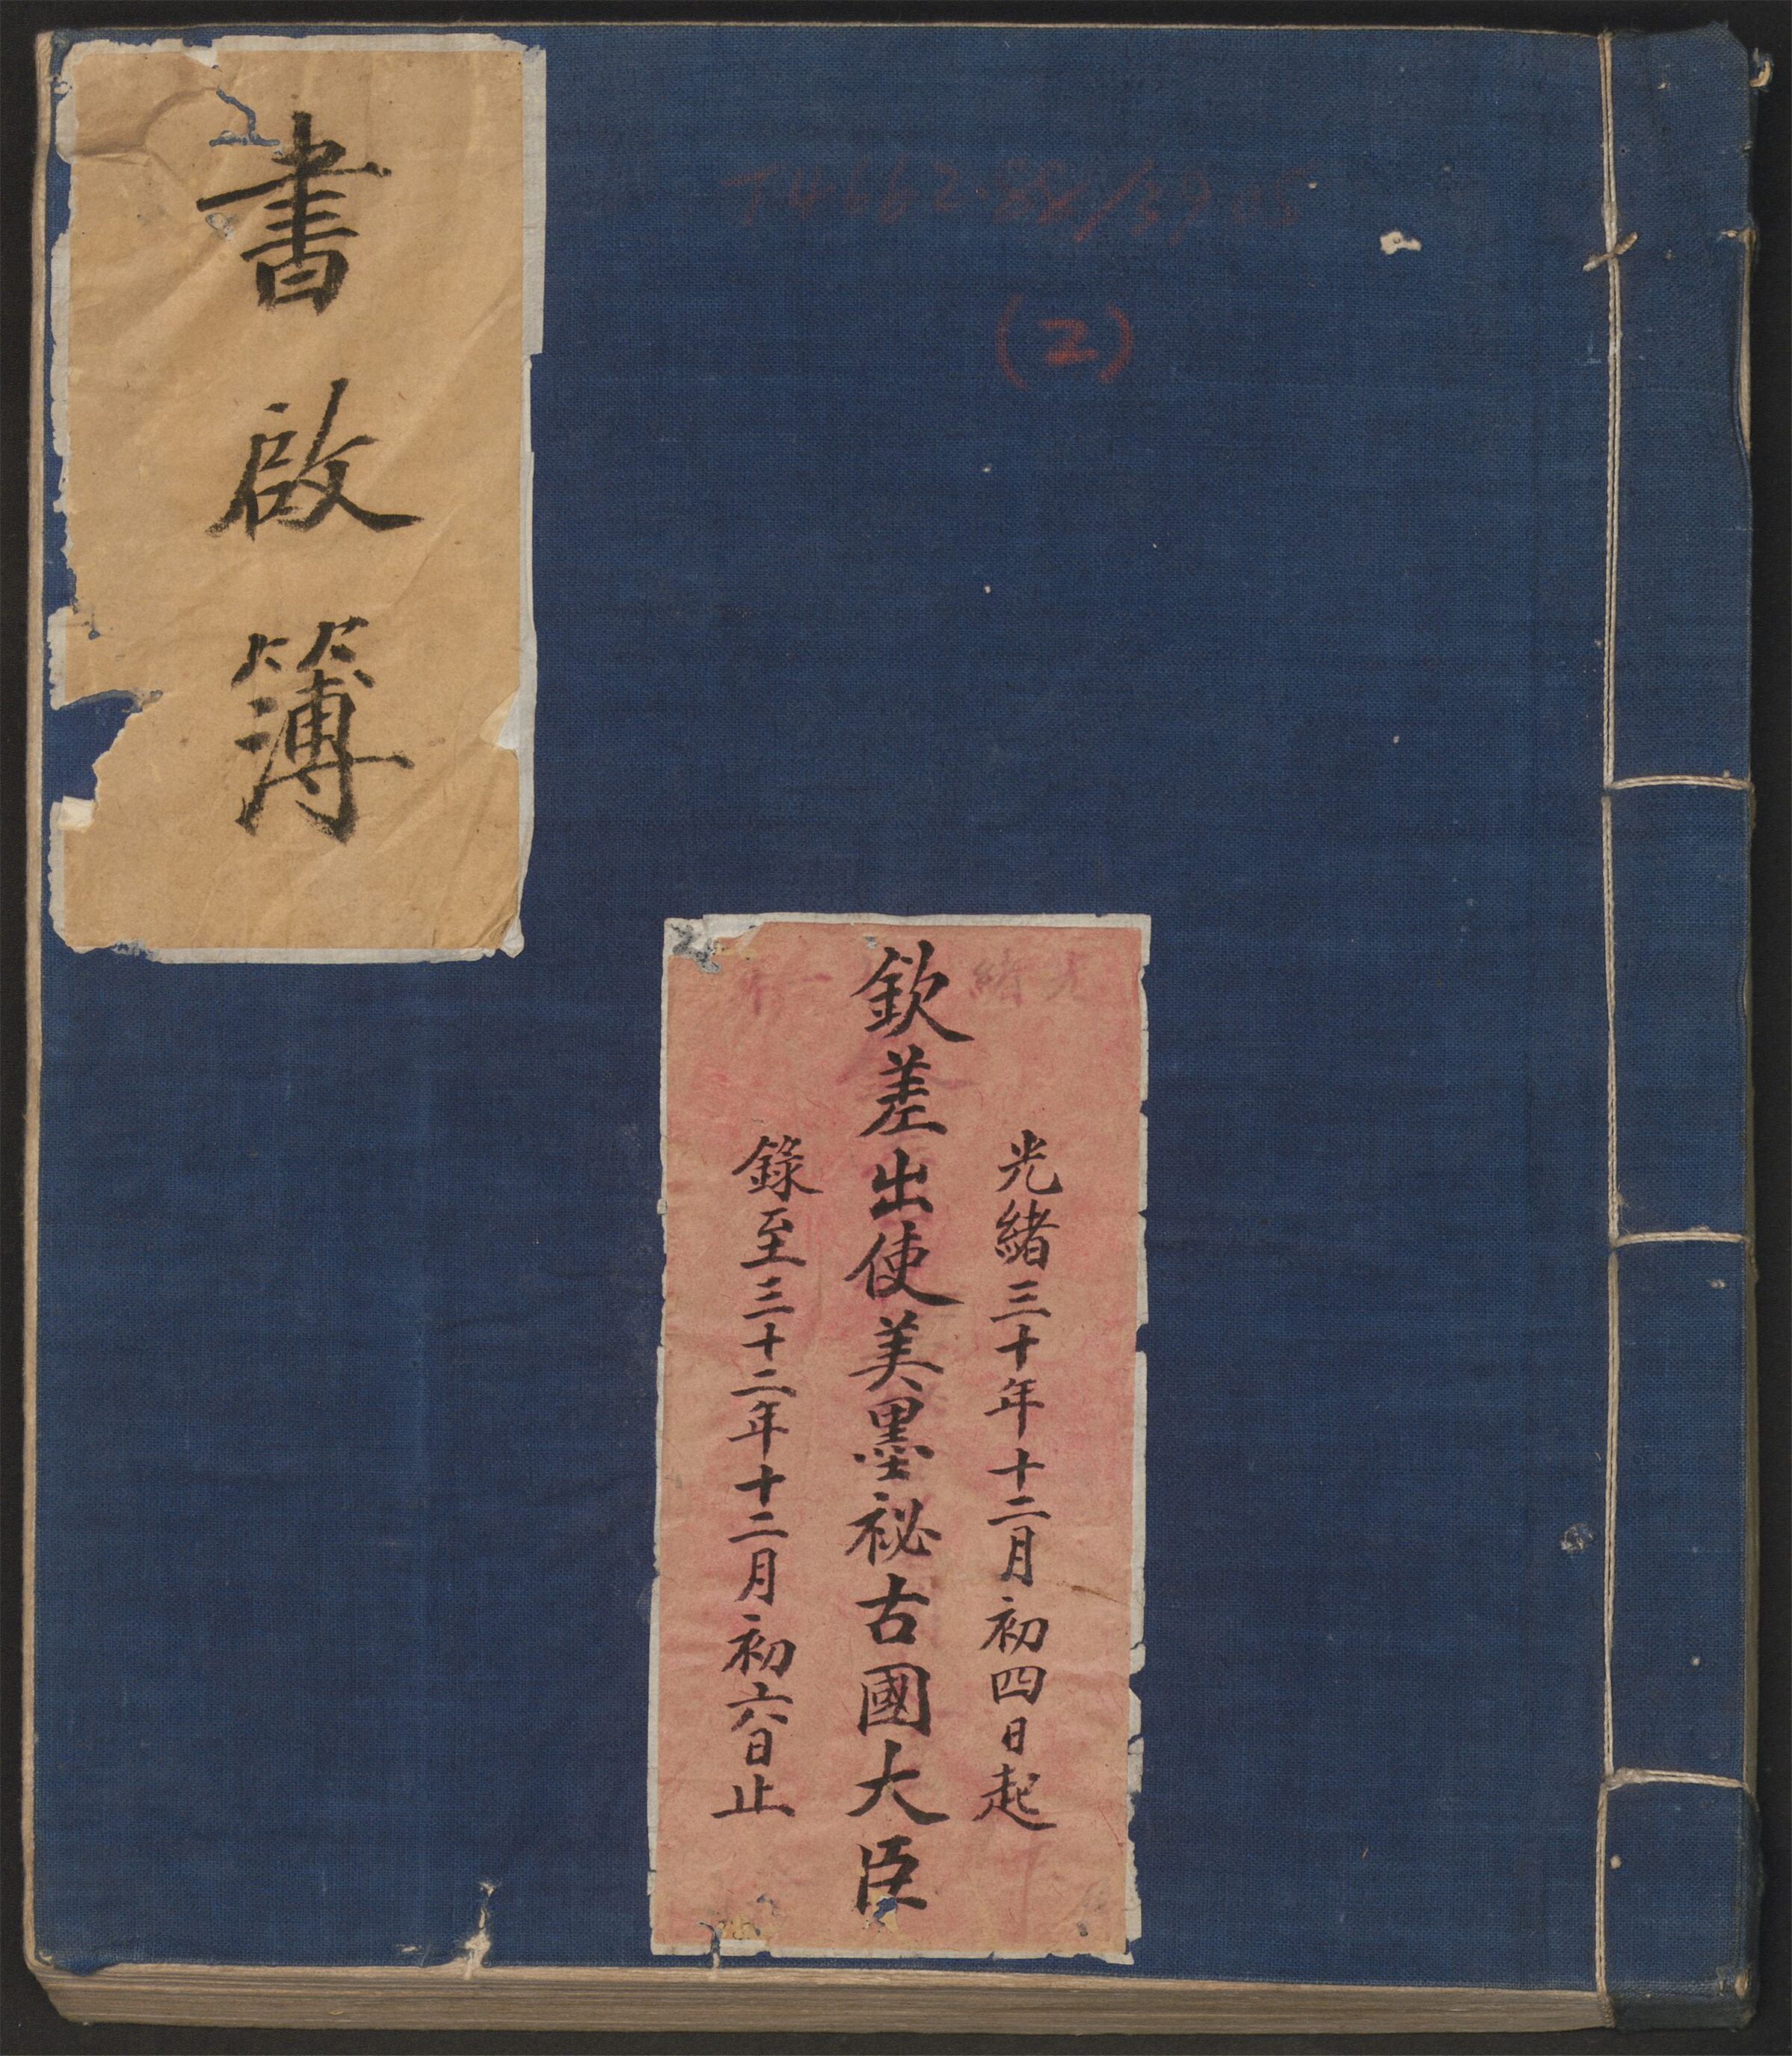 書啟簿
(2)
光緒三十年十二月初四日起
欽差出使美墨祕古國大臣
錄至三十二年十二月初六日止